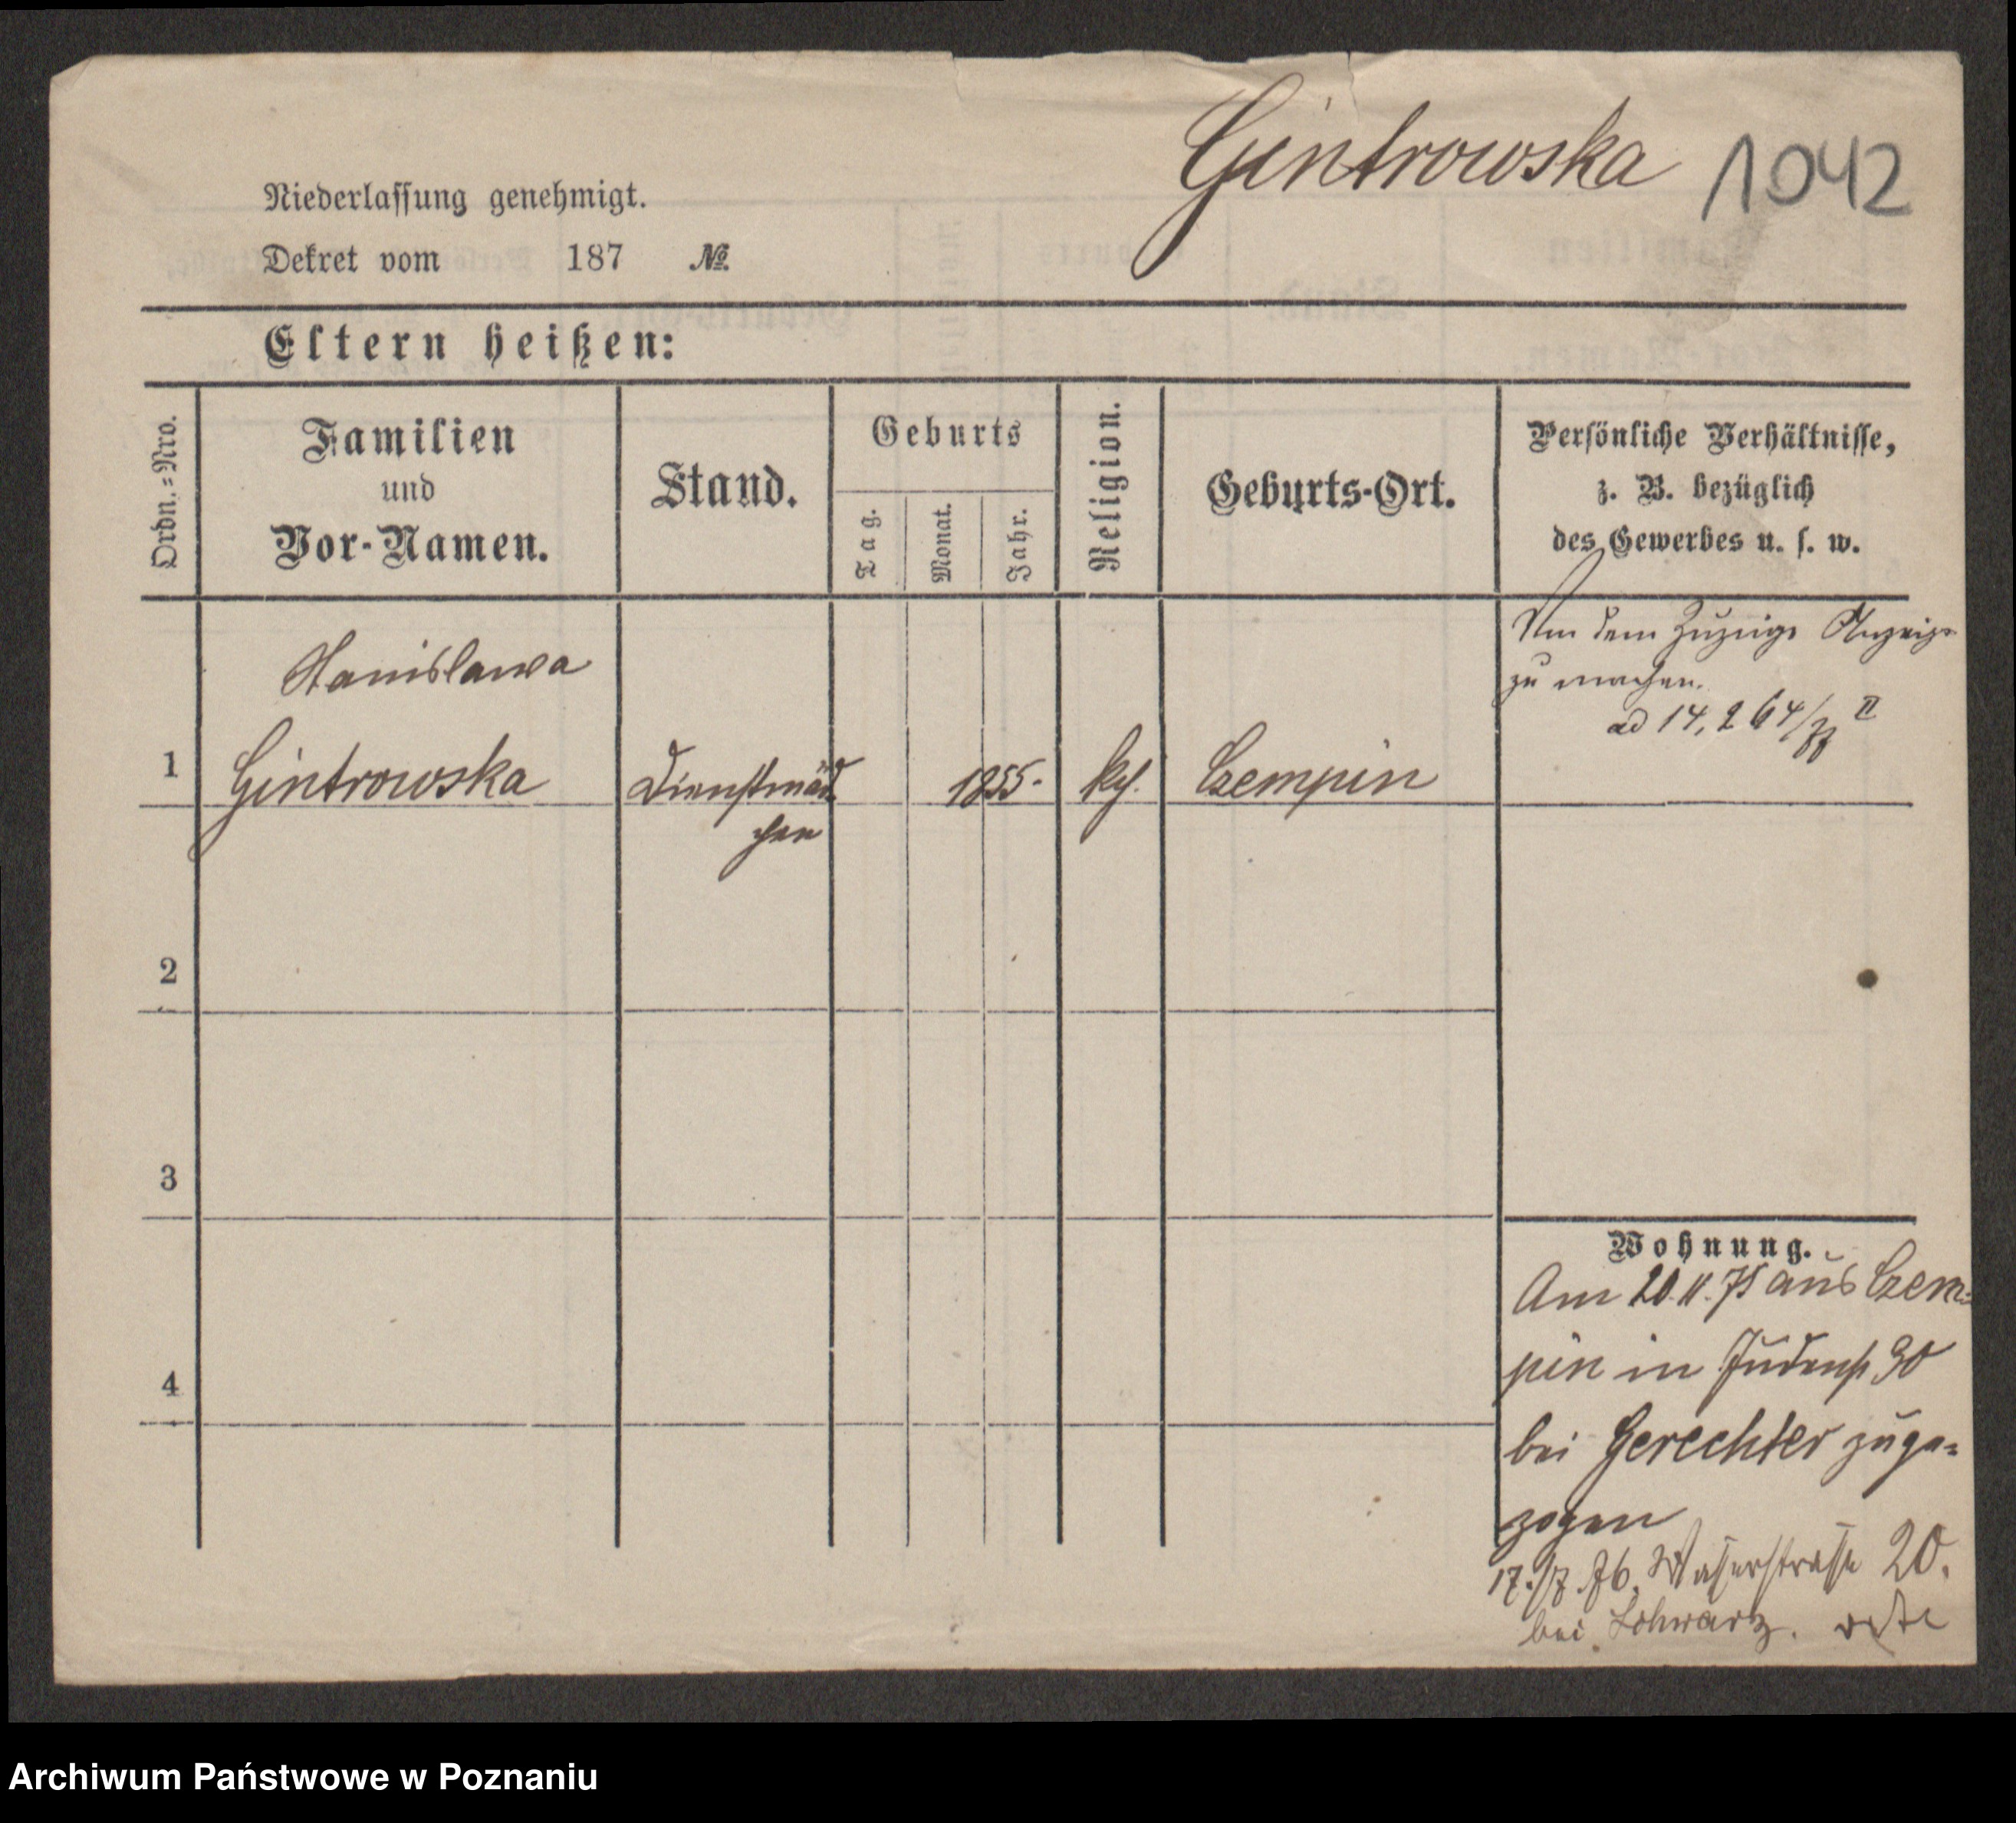 Gintrowska 1042
Niederlassung genehmigt.
Dekret vom 187 №
Eltern heißen:
Ordn.=Nro.
Familien
und
Vor-Namen.
Stand.
Geburts
Tag.
Monat.
Jahr.
Religion.
Geburts-Ort.
Persönliche Verhältnisse,
z. B. bezüglich
des Gewerbes u. s. w.
dem Zuzuge Anzeige
zu machen.
ad 14,264/ II
Stanislawa
1 Gintrowska Dienstmäd 1855. kth. Czempin
chen
2
3
4
Wohnung.
Am 20.11.75 aus Czem=
pin in Judenstr 30
bei Gerechter zuge=
zogen
17./7. 76. Wasserstrasse 20.
bei Schwarz.
Archiwum Państwowe w Poznaniu